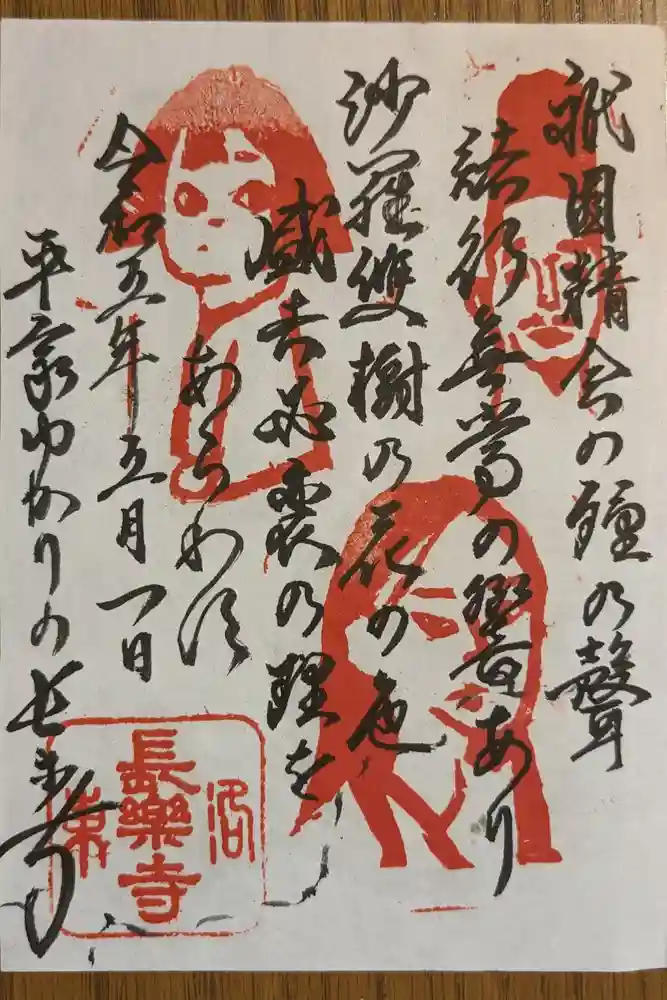 祇園精舎の鐘乃聲
諸行無常の響あり
沙羅雙樹乃花の色
盛者必衰乃理を
あらわす
令和五年五月一日
平家ゆかりの長楽寺
洛東
長樂寺